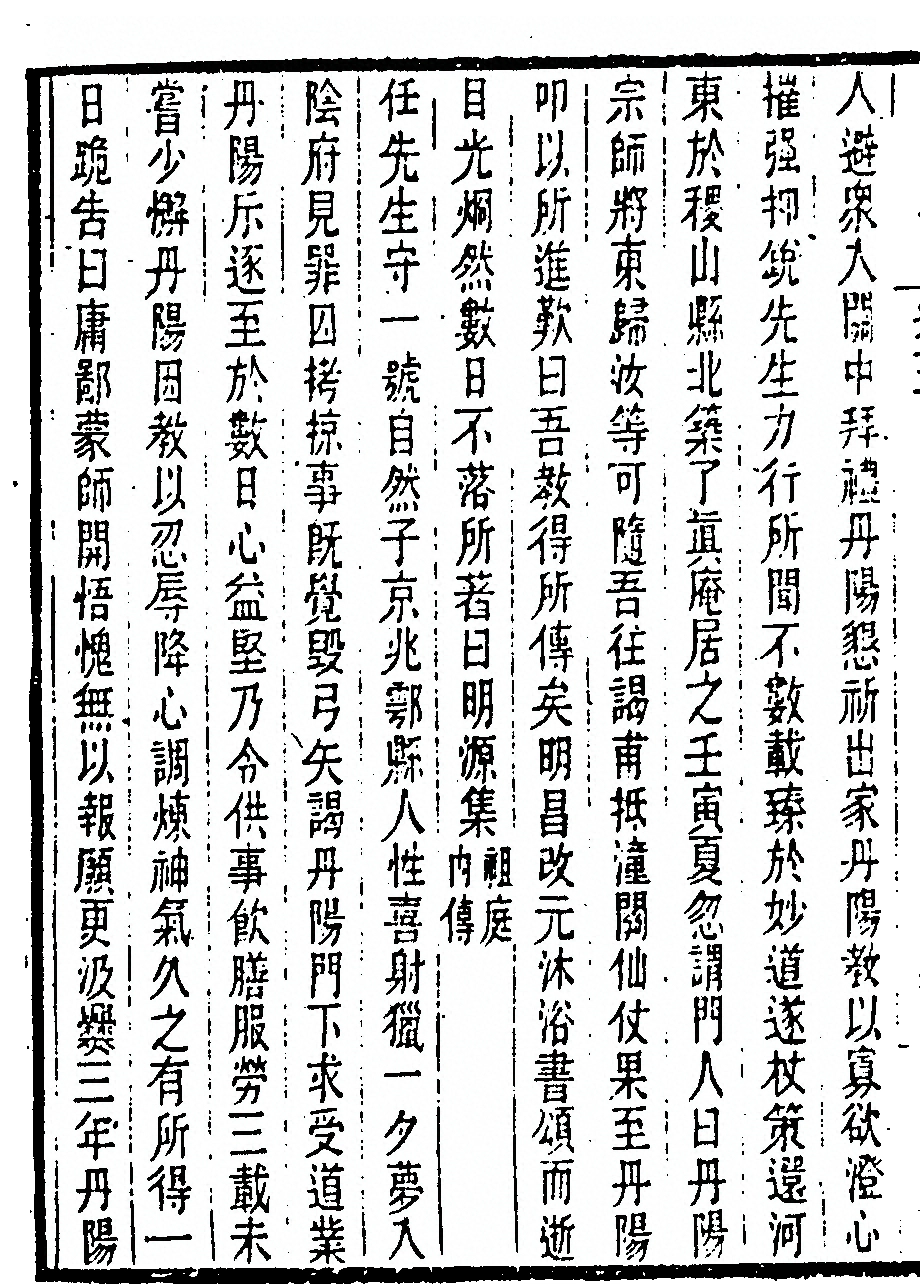 人避衆入關中拜禮丹陽懇祈出家丹陽教以寡欲澄心
摧强抑銳先生力行所聞不數載臻於妙道遂杖策還河
東於稷山縣北築了眞庵居之壬寅夏忽謂門人曰丹陽
宗師將東歸汝等可隨吾往謁甫抵潼關仙仗果至丹陽
叩以所進歎曰吾教得所傳矣明昌改元沐浴書頌而逝
目光烱然數日不落所著曰明源集祖庭內傳
任先生守一號自然子京兆鄠縣人性喜射獵一夕夢入
陰府見罪囚拷掠事既覺毀弓矢謁丹陽門下求受道業
丹陽斥逐至於數日心益堅乃令供事飮膳服勞三載未
嘗少懈丹陽因教以忍辱降心調煉神氣久之有所得一
日跪告曰庸鄙蒙師開悟愧無以報願更汲爨三年丹陽